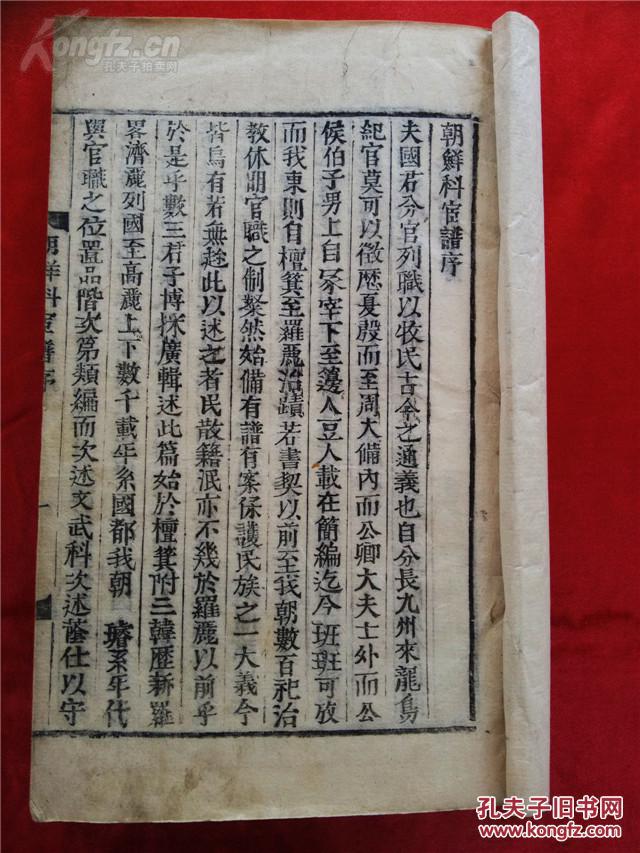 Kongfz.cn
孔夫子拍卖网
朝鮮科宦譜序
夫國君分官列職以牧民古今之通義也自分長九州來龍鳥
紀官莫可以徵歷夏殷而至周大備內而公卿大夫士外而公
侯伯子男上自冢宰下至籩人豆人載在簡編迄今班班可攷
而我東則自檀箕至羅麗治蹟若書契以前至我朝數百祀治
敎休朙官職之制粲然始備有譜有案保護民族之一大義今
皆烏有若無趁此以述之者民散籍泯亦不幾於羅麗以前乎
於是乎數三君子博採廣輯述此篇始於檀箕附三韓歷新羅
畧濟麗列國至高麗上下數千載年系國都我朝 璿系年代
與官職之位置品階次第類編而次述文武科次述蔭仕以守
朝鮮科宦譜序
一
孔夫子旧书网
www.kongfz.com